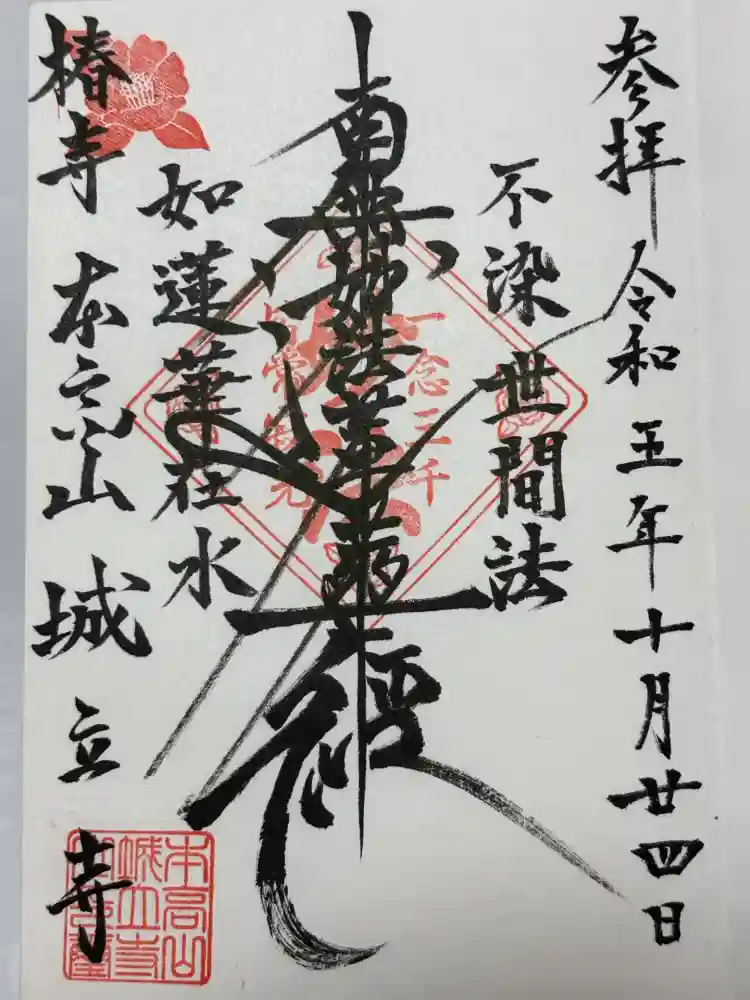 参拝 令和五年十月廿四日
不染世間法
南無妙法蓮華経
如蓮華在水
椿寺 本高山 城立寺
一念三千
本高山
城立寺